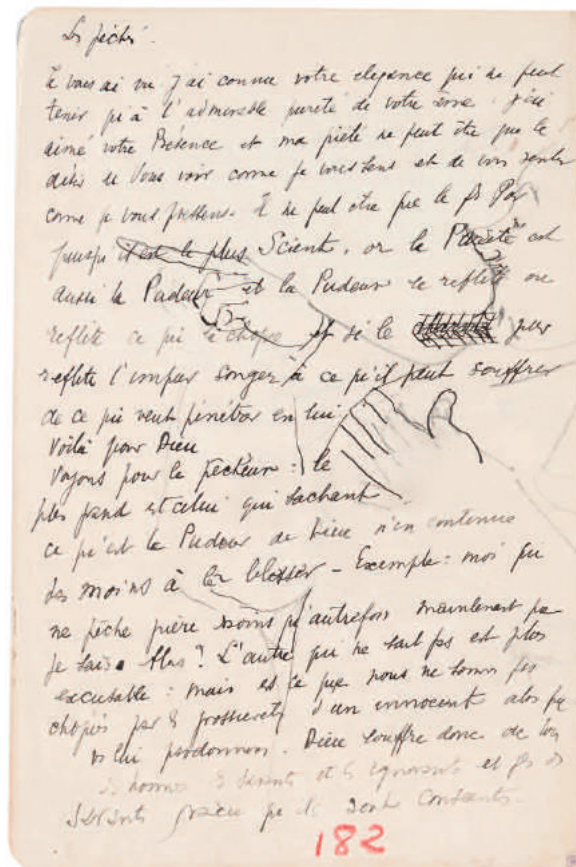 Les péchés.
Je vous ai vu j'ai connu votre elegance qui ne peut
tenir qu'à l'admirable pureté de votre âme. j'ai
aimé votre Présence et ma piété ne peut être que le
désir de Vous voir comme je vous sens et de vous sentir
comme je vous pressens. Il ne peut être que le + Pur
puisqu'il est le plus Scient, or la Pureté est
aussi la Pudeur et la Pudeur se reflète ou
reflète ce qui la choque et si le pur
reflète l'impur songez à ce qu'il peut souffrir
de ce qui veut pénétrer en lui
Voilà pour Dieu
Voyons pour le pécheur : le
plus grand est celui qui sachant
ce qu'est la Pudeur de Dieu n'en continue
pas moins à la blesser – Exemple : moi qui
ne pèche guère moins qu'autrefois maintenant que
je sais. L'autre qui ne sait pas est plus
excusable : mais est ce que nous ne sommes pas
choqués par la grossièreté d'un innocent alors que
lui pardonnons. Dieu souffre donc de tous
les hommes et les ignorants et
savants
182